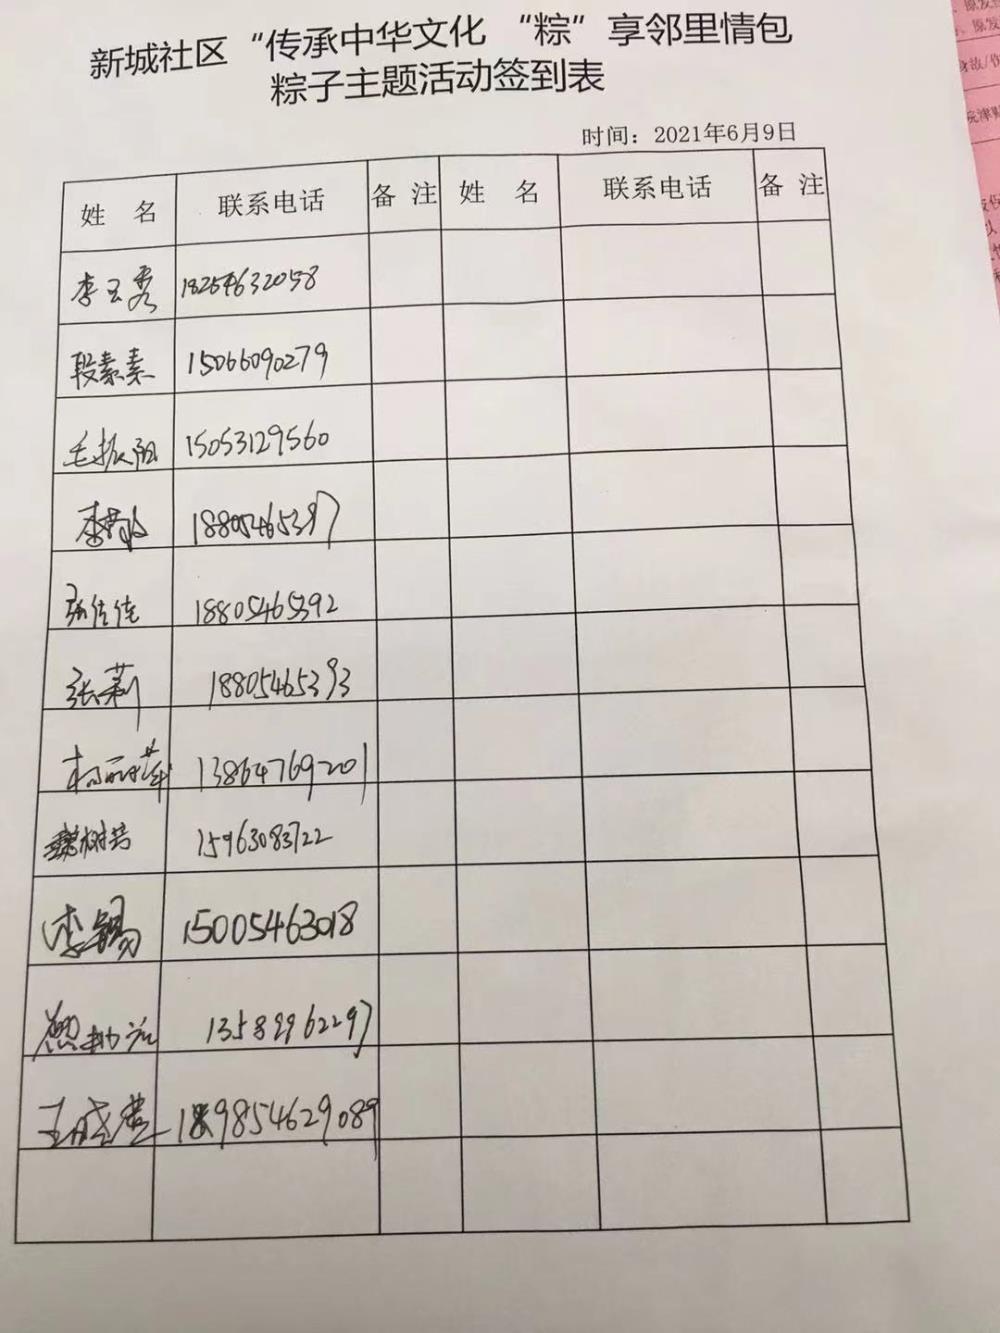 新城社区“传承中华文化 “粽”享邻里情包
粽子主题活动签到表
时间：2021年6月9日
姓 名 联系电话 备 注 姓 名 联系电话 备 注
李玉秀 18254632058
段素素 15066090279
毛振阳 15053129560
李 18805465397
张佳佳 18805465392
张莉 18805465393
杨丽萍 13864769201
魏树芳 15963083722
李锡 15005463018
13589962297
王晓 9854629089